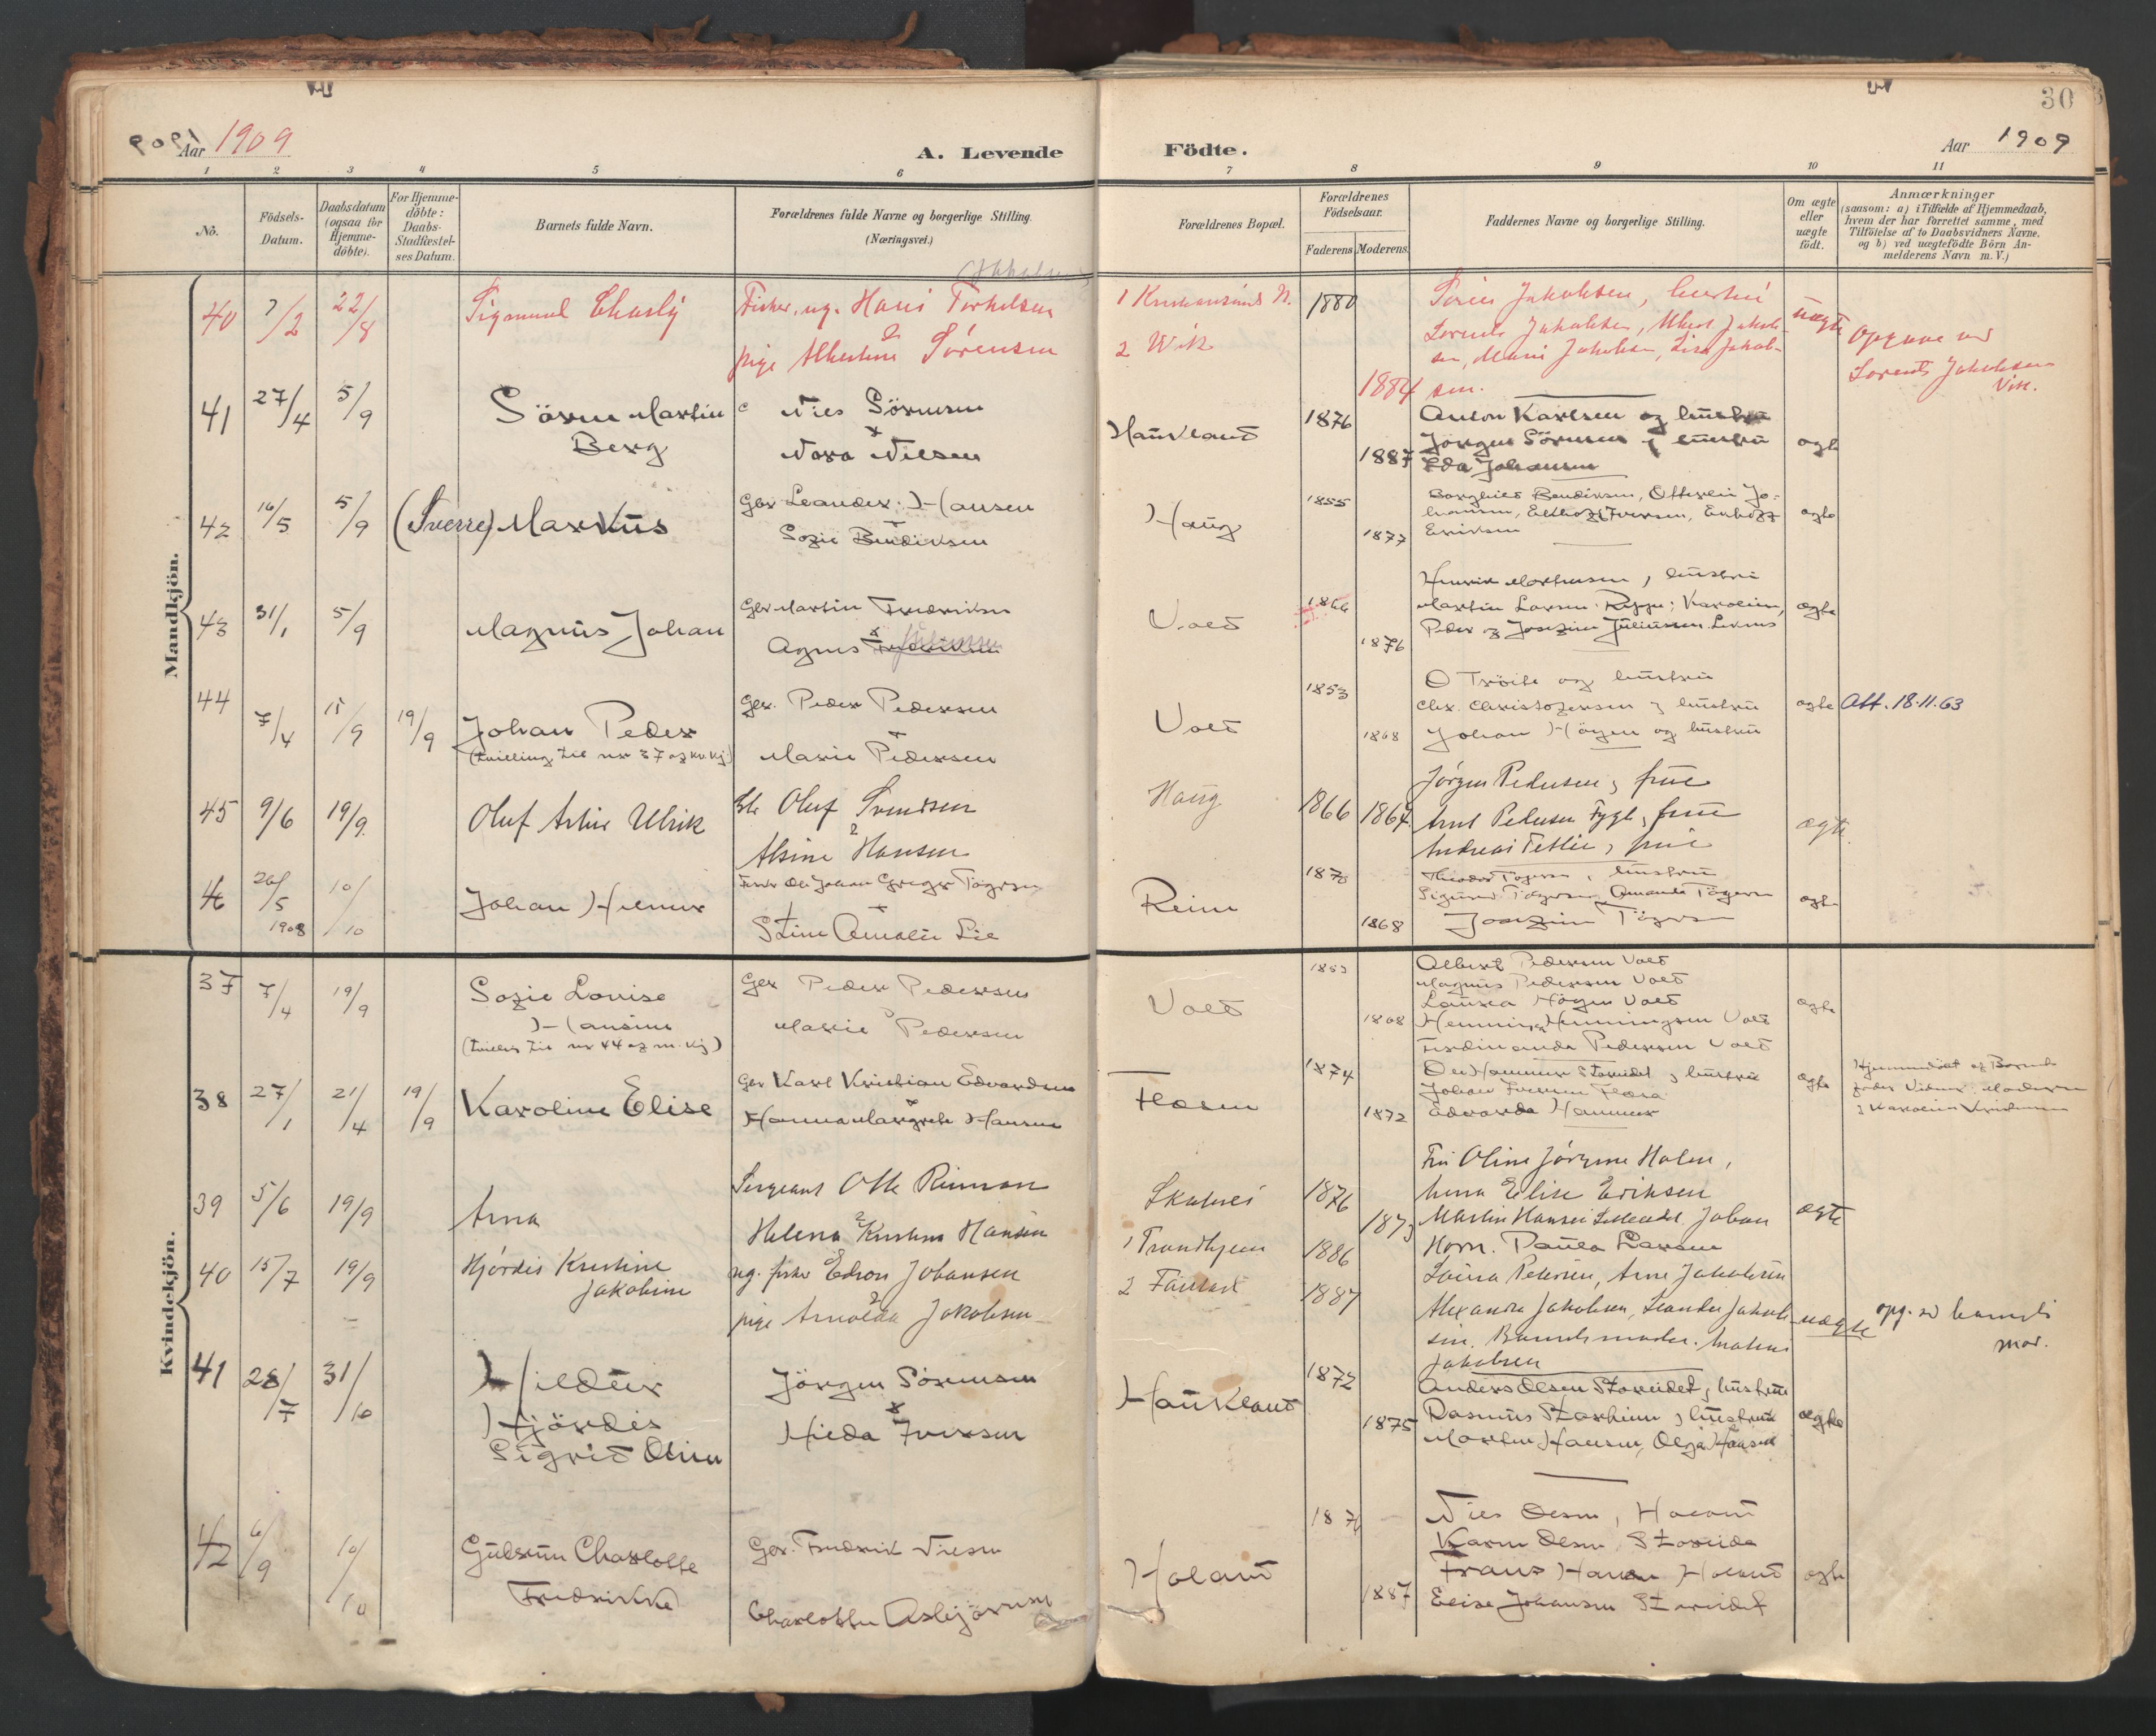 Aar 1909
A. Levende Födte.
Aar 1909
30
1 2 3 4 5 6 7 8 9 10 11
Nô.
Födsels-
Datum.
Daabsdatum
(ogsaa for
Hjemme-
döbte).
For Hjemme-
döbte:
Daabs-
Stadfæstel-
ses Datum.
Barnets fulde Navn.
Forældrenes fulde Navne og borgerlige Stilling.
(Næringsvei.)
Forældrenes Bopæl.
Forældrenes
Födselsaar.
Faderens Moderens
Faddernes Navne og borgerlige Stilling.
Om ægte
eller
uægte
födt.
Anmærkninger
(saasom: a) i Tilfælde af Hjemmedaab,
hvem der har forrettet samme, med
Tilföielse af to Daabsvidners Navne.
og b) ved uægtefödte Börn An-
melderens Navn m. V.)
Mandkjön.
40 7/2 22/8 Sigmund Charly
Fisker, ug. Hans Torkelsen
pige Albertine Sörensen
1 Kristiansund N.
2 Wik
1880
1884
Sören Jakobsen, hustru
Lorents Jakobsen, Albert Jakob-
sen, Marie Jakobsen, Lisa Jakob-
sen.
uægte
Opgave ved
Lorents Jakobsen
Vik.
41 27/4 5/9 Sören Martin
Berg
Nils Sörensen
Nora Nilsen
Haukland
1876
1887
Anton Karlsen og hustru
Jörgen Sörensen & hustru
Eda Johansen
ægte
42 16/5 5/9 (Sverre) Markus
Gbr Leander Hansen
Sofie Bendiksen
Haug
1855
1877
Borghild Bendiksen, Otterlei Jo-
hansen, Iversen,
Eriksen
ægte
43 31/1 5/9 Magnus Johan
Gbr Martin Fredriksen
Agnes Fredriksen
Vold
1866
1876
Henrik Mortensen, hustru
Martin Larsen Karoline,
Peder og Josefine Juliussen
ægte
44 7/4 15/9 19/9 Johan Peder
(tvilling til nr 37 af kv. kj)
Gbr. Peder Pedersen
Marie Pedersen
Vold
1853
1868
O Tröite og hustru
Chr. Christofersen & hustru
Johan Högen og hustru
ægte Att. 18.11.63
45 9/6 19/9. Oluf Artur Ulrik
Oluf Svendsen
Alsine Hansen
Haug
1866 1864
Jörgen Pedersen, frue
Arnt Pedersen Fygle, frue
Andreas Tetlie, frue
ægte.
46 26/5 1908 10/10 Johan Hilmer
Fisker Ole Johan Greger Tögersen
Stine Amalie Lie
Reine
1870
1868
Theodor Tögersen, hustru
Sigurd Tögersen Amanda Tögersen
Josefine Tögersen
ægte
Kvindekjön.
37 7/4 19/9 Sofie Lovise
Hansine
(tvilling til nr 44 af m. kj)
Gbr Peder Pedersen
Marie Pedersen
Vold
1853
1868
Albert Pedersen Vold
Magnus Pedersen Vold
Laura Högen Vold
Henning Henningsen Vold
Ferdinanda Pedersen Vold
ægte
38 27/1 21/4 19/9 Karoline Elise
Gbr Karl Kristian Edvardsen
Hanna Margrete Hansen
Flæsen
1874
1872
Ole Hammer Storeidet & hustru
Johan Iversen Flæsa
Edvarda Hammer
ægte
Hjemmedöbt af Barnets
fader Vidner Moderen
& Karoline Kristensen
39 5/6 19/9 Arna
Sergeant Otto Reinson
Helena Kristine Hansen
1876
1873
Fru Oline Jörgine Holen,
Anna Elise Eriksen
Martin Hansen Johan
Horn. Paula Larsen
ægte
40 15/7 19/9 Hjördis Kristine
Jakobine
ug. fisker Edron Johansen
pige Arnolda Jakobsen
1 Trondhjem
2 Farstad
1886
1887
Laura Petersen, Arne Jakobsen
Alexander Jakobsen, Leander Jakob-
sen. Barnets moder.
Jakobsen
uægte
opg. ved barnets
mor.
41 28/7 31/10 Hildur
Hjördis
Sigrid Oline
Jörgen Sörensen
Hilda Iversen
Haukland
1872
1875
Anders Olsen Storeidet, hustru
Rasmus Storheim, hustru
Morten Hansen, Olga Hansen
ægte
42 6/9 10/10 Gudrun Charlotte
Fredrikke
Gbr. Fredrik Nilsen
Charlotte Asbjörnsen
Holand
1876
1887
Nils Olsen, Holand
Karen Olsen, Storeide
Frans Hansen Holand
Elise Johansen Storeidet
ægte